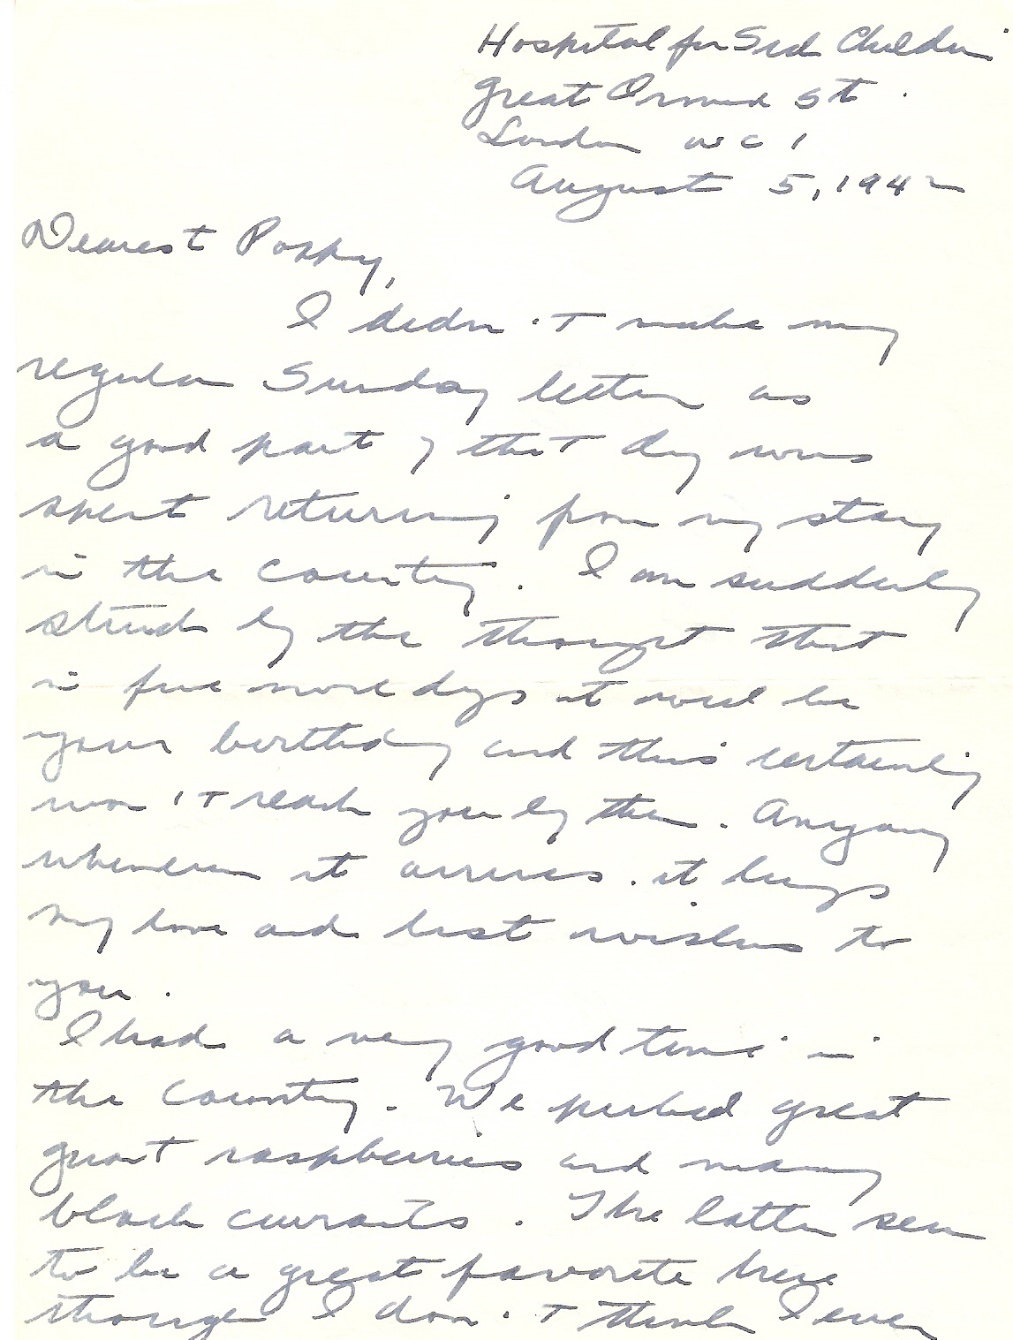 Hospital for Sick Children
Great Ormond St.
London W C 1
August 5, 1942
Dearest Poppy,
I didn't make my
regular Sunday letter as
a good part of that day was
spent returning from my stay
in the country. I am suddenly
struck by the thought that
in five more days it will be
your birthday and this certainly
won't reach you by then. Anyway
whenever it arrives it brings
my love and best wishes to
you.
I had a very good time in
the country. We picked great
giant raspberries and many
black currants. The latter seem
to be a great favorite here
though I don't think I ever